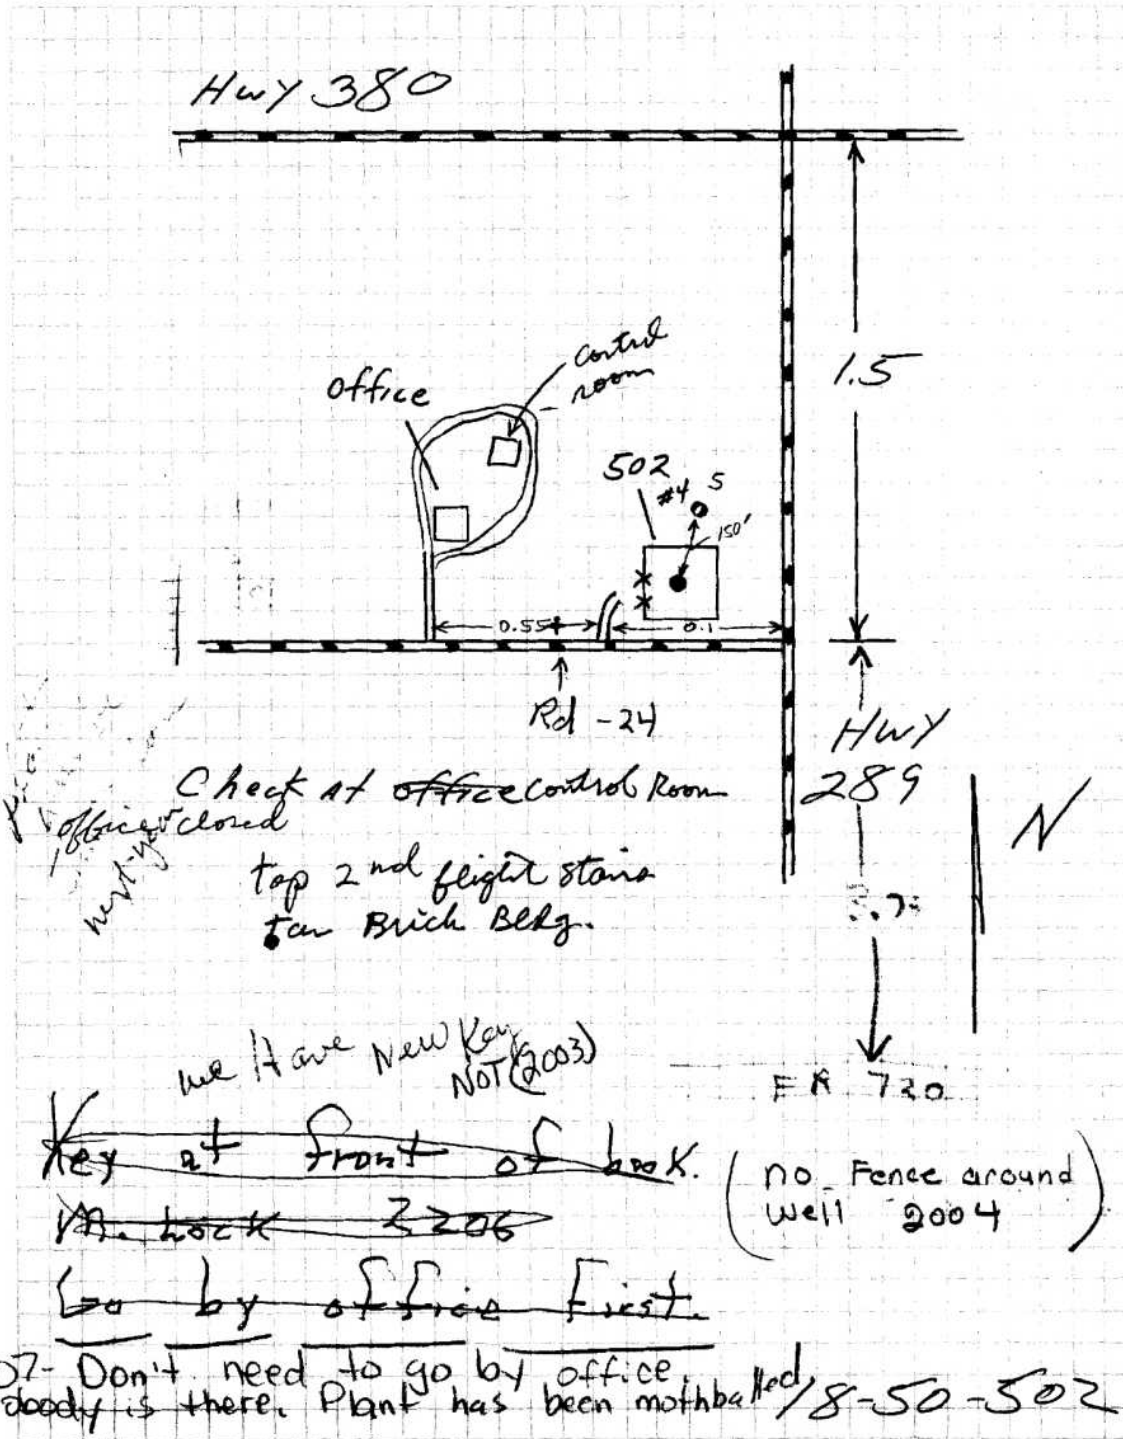 Hwy 380
1.5
control
room
office
502
#4 5
150'
0.55
0.1
Rd -24
Hwy
289
Check At office control Room
office closed
top 2nd flight stairs
tan Brick Bldg.
N
we Have New Key
NOT (2003)
720
Key at front of book.
M. Lock 2206
no Fence around
well 2004
Go by office First.
07- Don't need to go by office.
is there. Plant has been mothballed
18-50-502